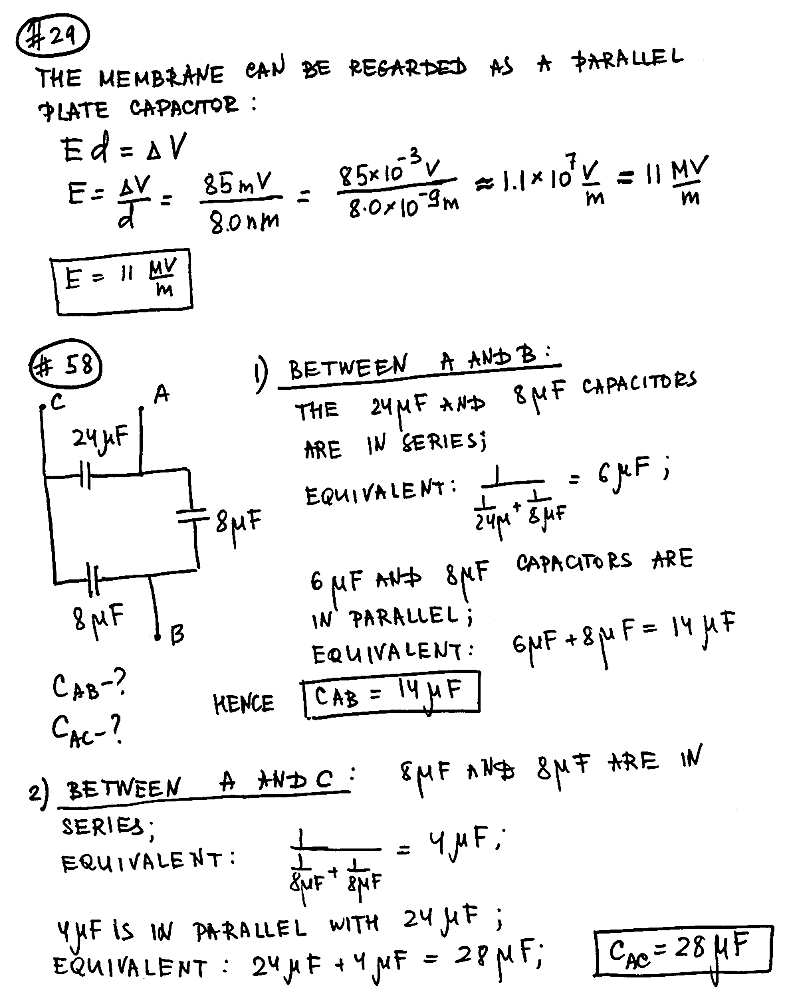 #29
THE MEMBRANE CAN BE REGARDED AS A PARALLEL
PLATE CAPACITOR:
Ed = ΔV
E = ΔV/d = 85mV/8.0nm = 85×10⁻³V/8.0×10⁻⁹m ≈ 1.1×10⁷ V/m = 11 MV/m
E = 11 MV/m
#58
C
A
24μF
8μF
8μF
B
C_AB-?
C_AC-?
1) BETWEEN A AND B:
THE 24μF AND 8μF CAPACITORS
ARE IN SERIES;
EQUIVALENT: 1/(1/24μ + 1/8μF) = 6μF;
6μF AND 8μF CAPACITORS ARE
IN PARALLEL;
EQUIVALENT: 6μF + 8μF = 14μF
HENCE C_AB = 14μF
2) BETWEEN A AND C: 8μF AND 8μF ARE IN
SERIES;
EQUIVALENT: 1/(1/8μF + 1/8μF) = 4μF;
4μF IS IN PARALLEL WITH 24μF;
EQUIVALENT: 24μF + 4μF = 28μF; C_AC = 28μF